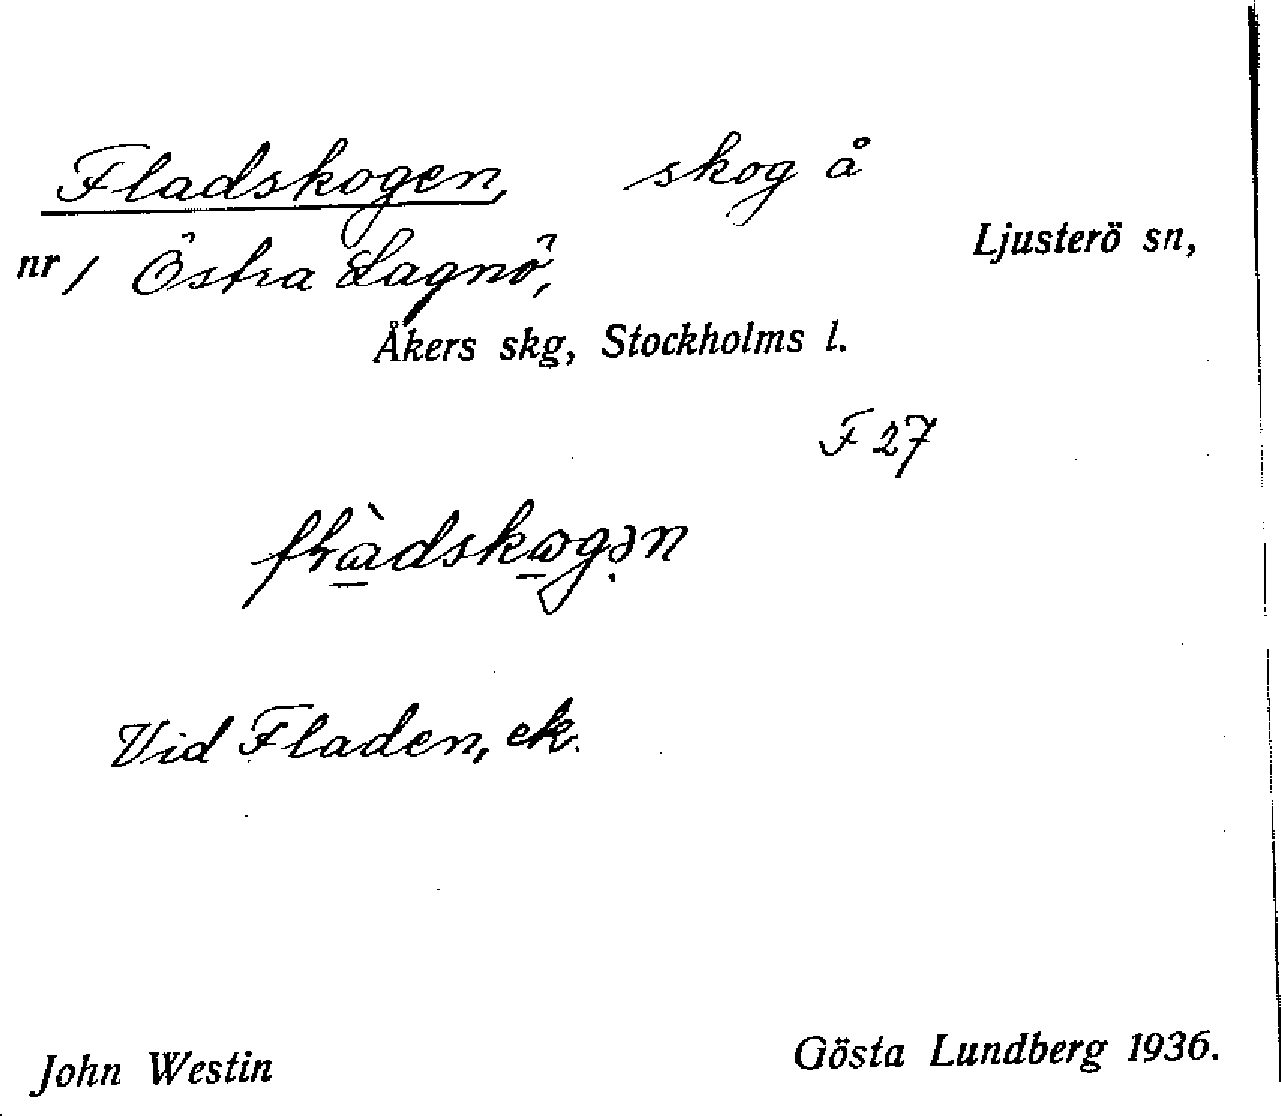 Fladskogen, skog å
Ljusterö sn,
nr 1 Östra Lagnö,
Åkers skg, Stockholms l.
F 27
Vid Fladen, ek.
John Westin Gösta Lundberg 1936.